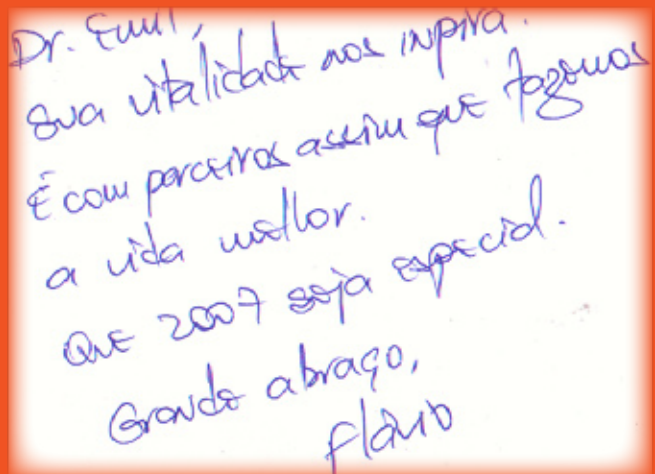 Dr. Emil,
Sua vitalidade nos inspira.
É com parceiros assim que fazemos
a vida melhor.
Que 2007 seja especial.
Grande abraço,
Flávio